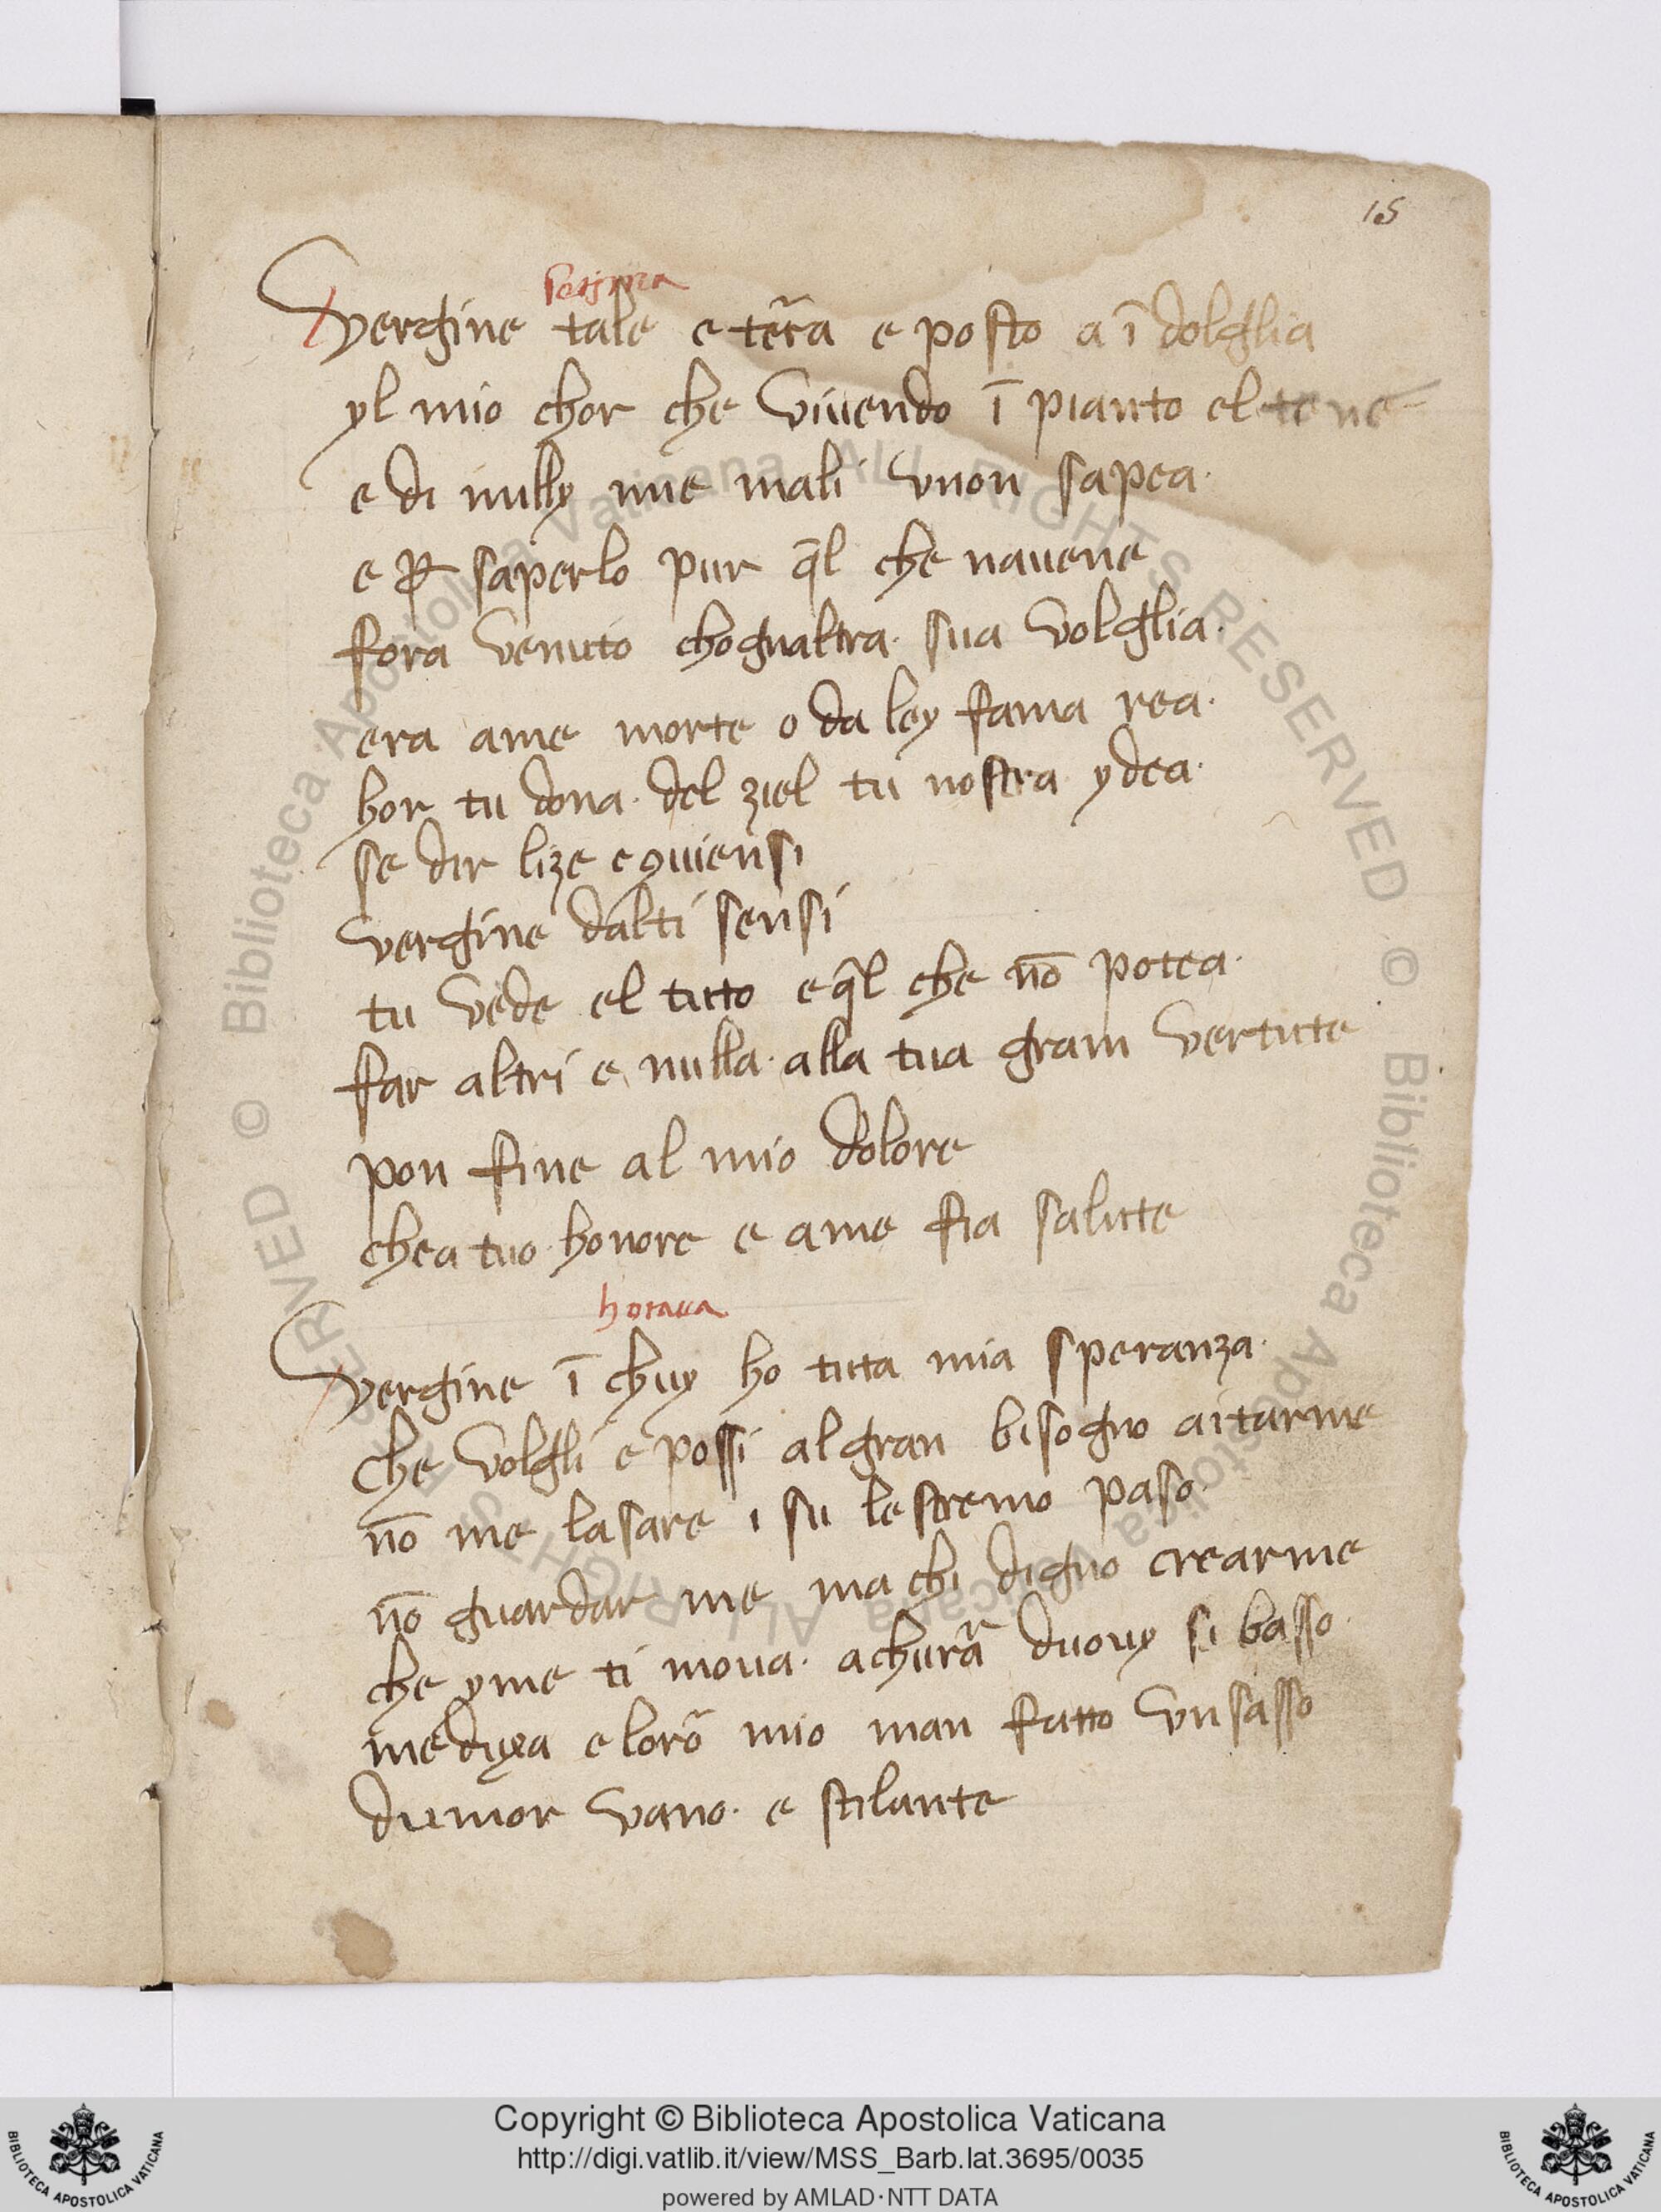 15
Setjma
Vergine tale e terã e posto a ĩ dolglia
yl mio chor che viuendo ĩ pianto el tene
e di milly mie mali vnon sapea.
e ꝑ saperlo pur q̃l che nauene
fora venuto chognaltra. sua volglia.
era ame morte o da ley fama rea.
hor tu dona. del ziel tu nostra ydea.
se dir lize e ꝯuiensi
vergine dalti sensi
tu vede el tutto e q̃l che nõ potea.
far altri e nulla. alla tua gram vertute
pon fine al mio dolore
chea tuo honore e ame fia salute
hotaua
Vergine ĩ chuy ho tutta mia speranza.
che volgli e possi al gran bisogno aitarme
nõ me lasare i su lestremo paso.
nõ guardar me ma chi digno crearme
che yme ti moua. achurã duouy si basso.
meduxa e lorõ mio man fatto vn sasso
dumor vano. e stilante
© Biblioteca Apostolica Vaticana ALL RIGHTS RESERVED © Biblioteca Apostolica Vaticana ALL RIGHTS RESERVED
Copyright © Biblioteca Apostolica Vaticana
http://digi.vatlib.it/view/MSS_Barb.lat.3695/0035
powered by AMLAD·NTT DATA
BIBLIOTECA APOSTOLICA VATICANA
BIBLIOTECA APOSTOLICA VATICANA